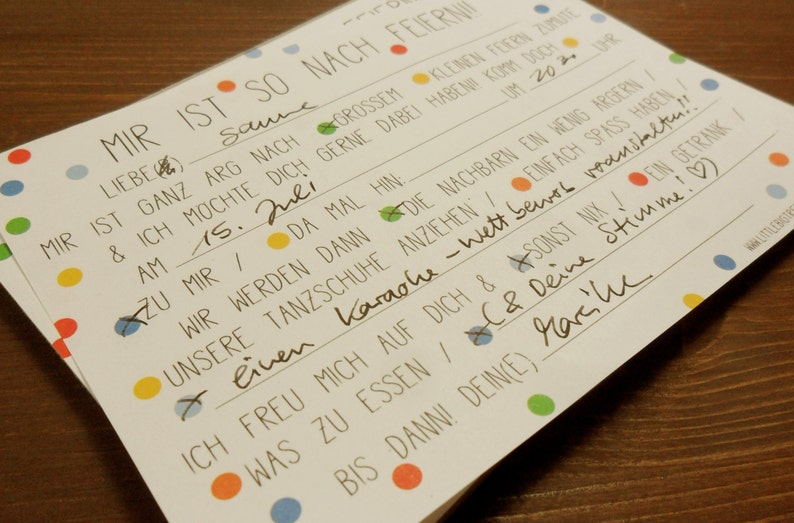 MIR IST SO NACH FEIERN!!
LIEBE(R) Sanne
MIR IST GANZ ARG NACH GROSSEM KLEINEN FEIERN ZUMUTE
& ICH MÖCHTE DICH GERNE DABEI HABEN!! KOMM DOCH
AM 15. Juli UM 20 UHR
ZU MIR / DA MAL HIN:
WIR WERDEN DANN DIE NACHBARN EIN WENIG ÄRGERN /
UNSERE TANZSCHUHE ANZIEHEN / EINFACH SPASS HABEN /
einen Karaoke-Wettbewerb veranstalten!!
ICH FREU MICH AUF DICH & SONST NIX / EIN GETRÄNK /
WAS ZU ESSEN / (& Deine Stimme! ♡)
BIS DANN! DEIN(E) Mareike